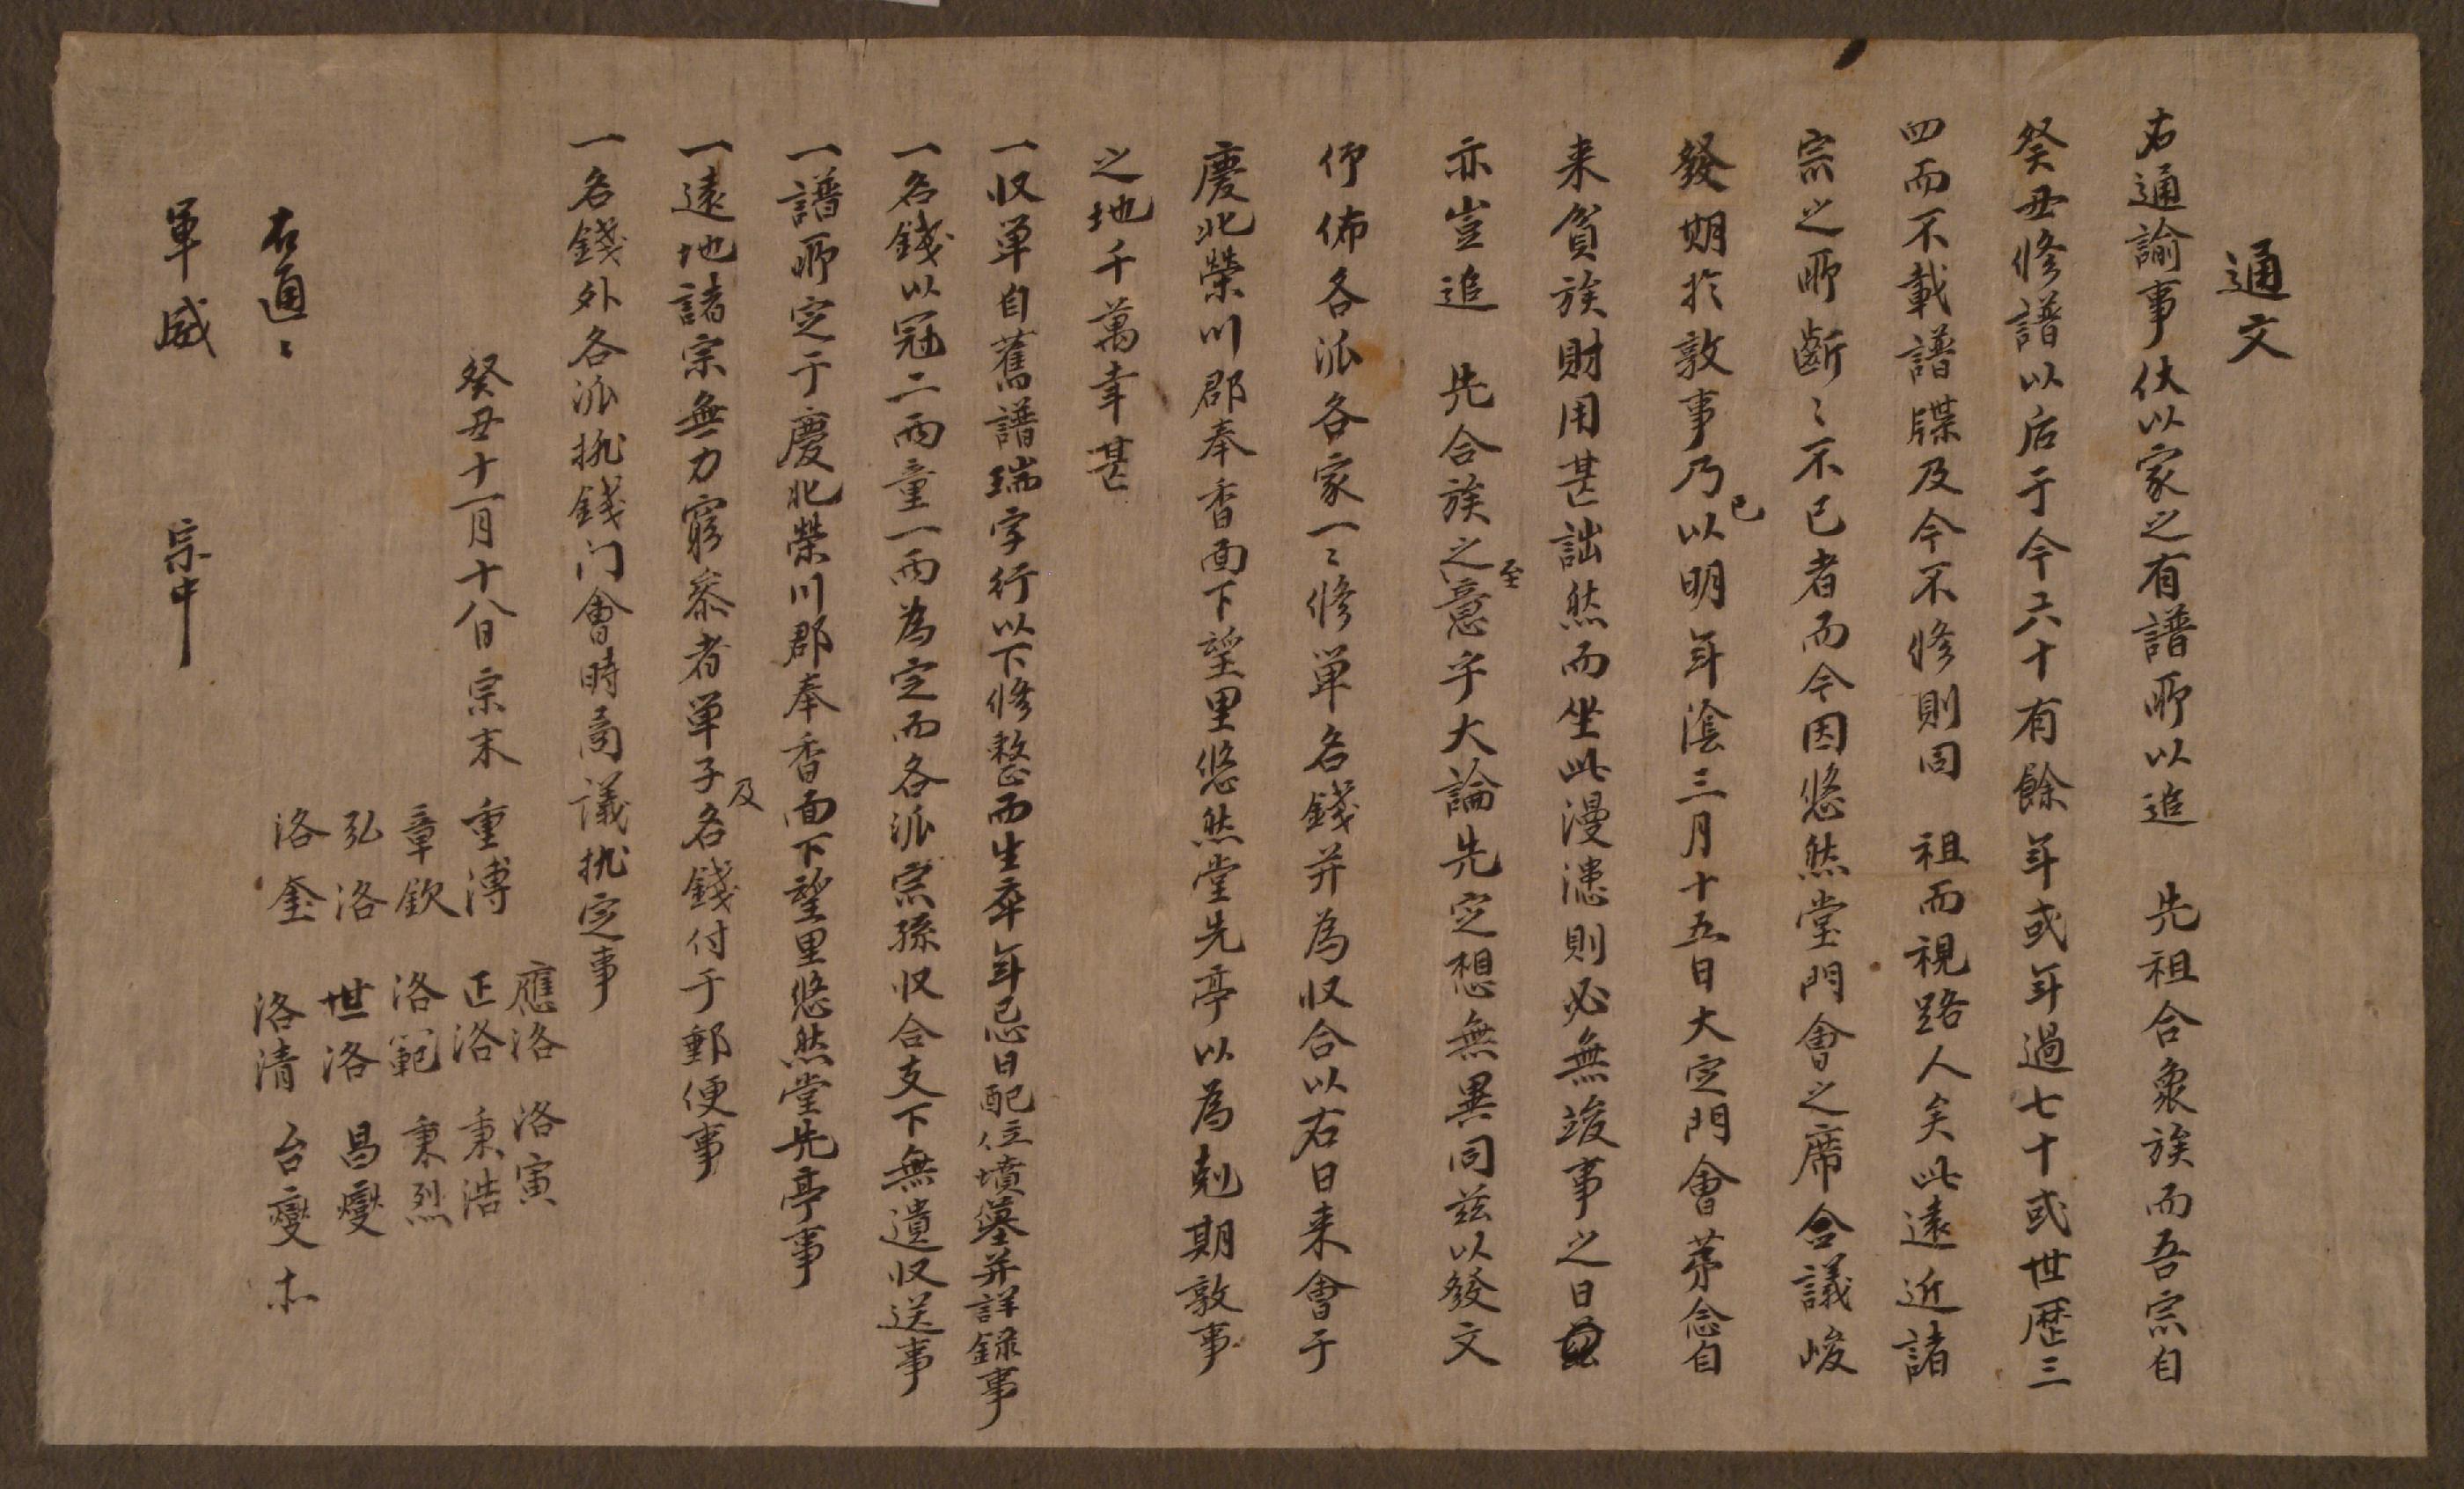 通文
右通諭事伏以家之有譜所以追 先祖合衆族而吾宗自
癸丑修譜以后于今六十有餘年或年過七十或世歷三
四而不載譜牒及今不修則同 祖而視路人矣此遠近諸
宗之所齗〻不已者而今因悠然堂門會之席合議峻
發期於敦事乃已以明年陰三月十五日大定門會第念自
来貧族財用甚詘然而坐此漫漶則必無竣事之日
亦豈追 先合族之至意乎大論先定想無異同玆以發文
伻佈各派各家一〻修單名錢并爲收合以右日来會于
慶北榮川郡奉香面下望里悠然堂先亭以爲剋期敦事
之地千萬幸甚
一收單自舊譜瑞字行以下修整而生卒年忌日配位墳墓并詳錄事
一名錢以冠二兩童一兩爲定而各派宗孫收合支下無遺收送事
一譜所定于慶北榮川郡奉香面下望里悠然堂先亭事
一遠地諸宗無力窮叅者單子及名錢付于郵便事
一名錢外各派排錢门會時商議排定事
癸丑十一月十八日宗末 重溥 應洛 洛寅
正洛 秉浩
章欽 洛範 秉烈
弘洛 世洛 昌燮
洛奎 洛清 台燮 ホ
右通〻
軍威 宗中